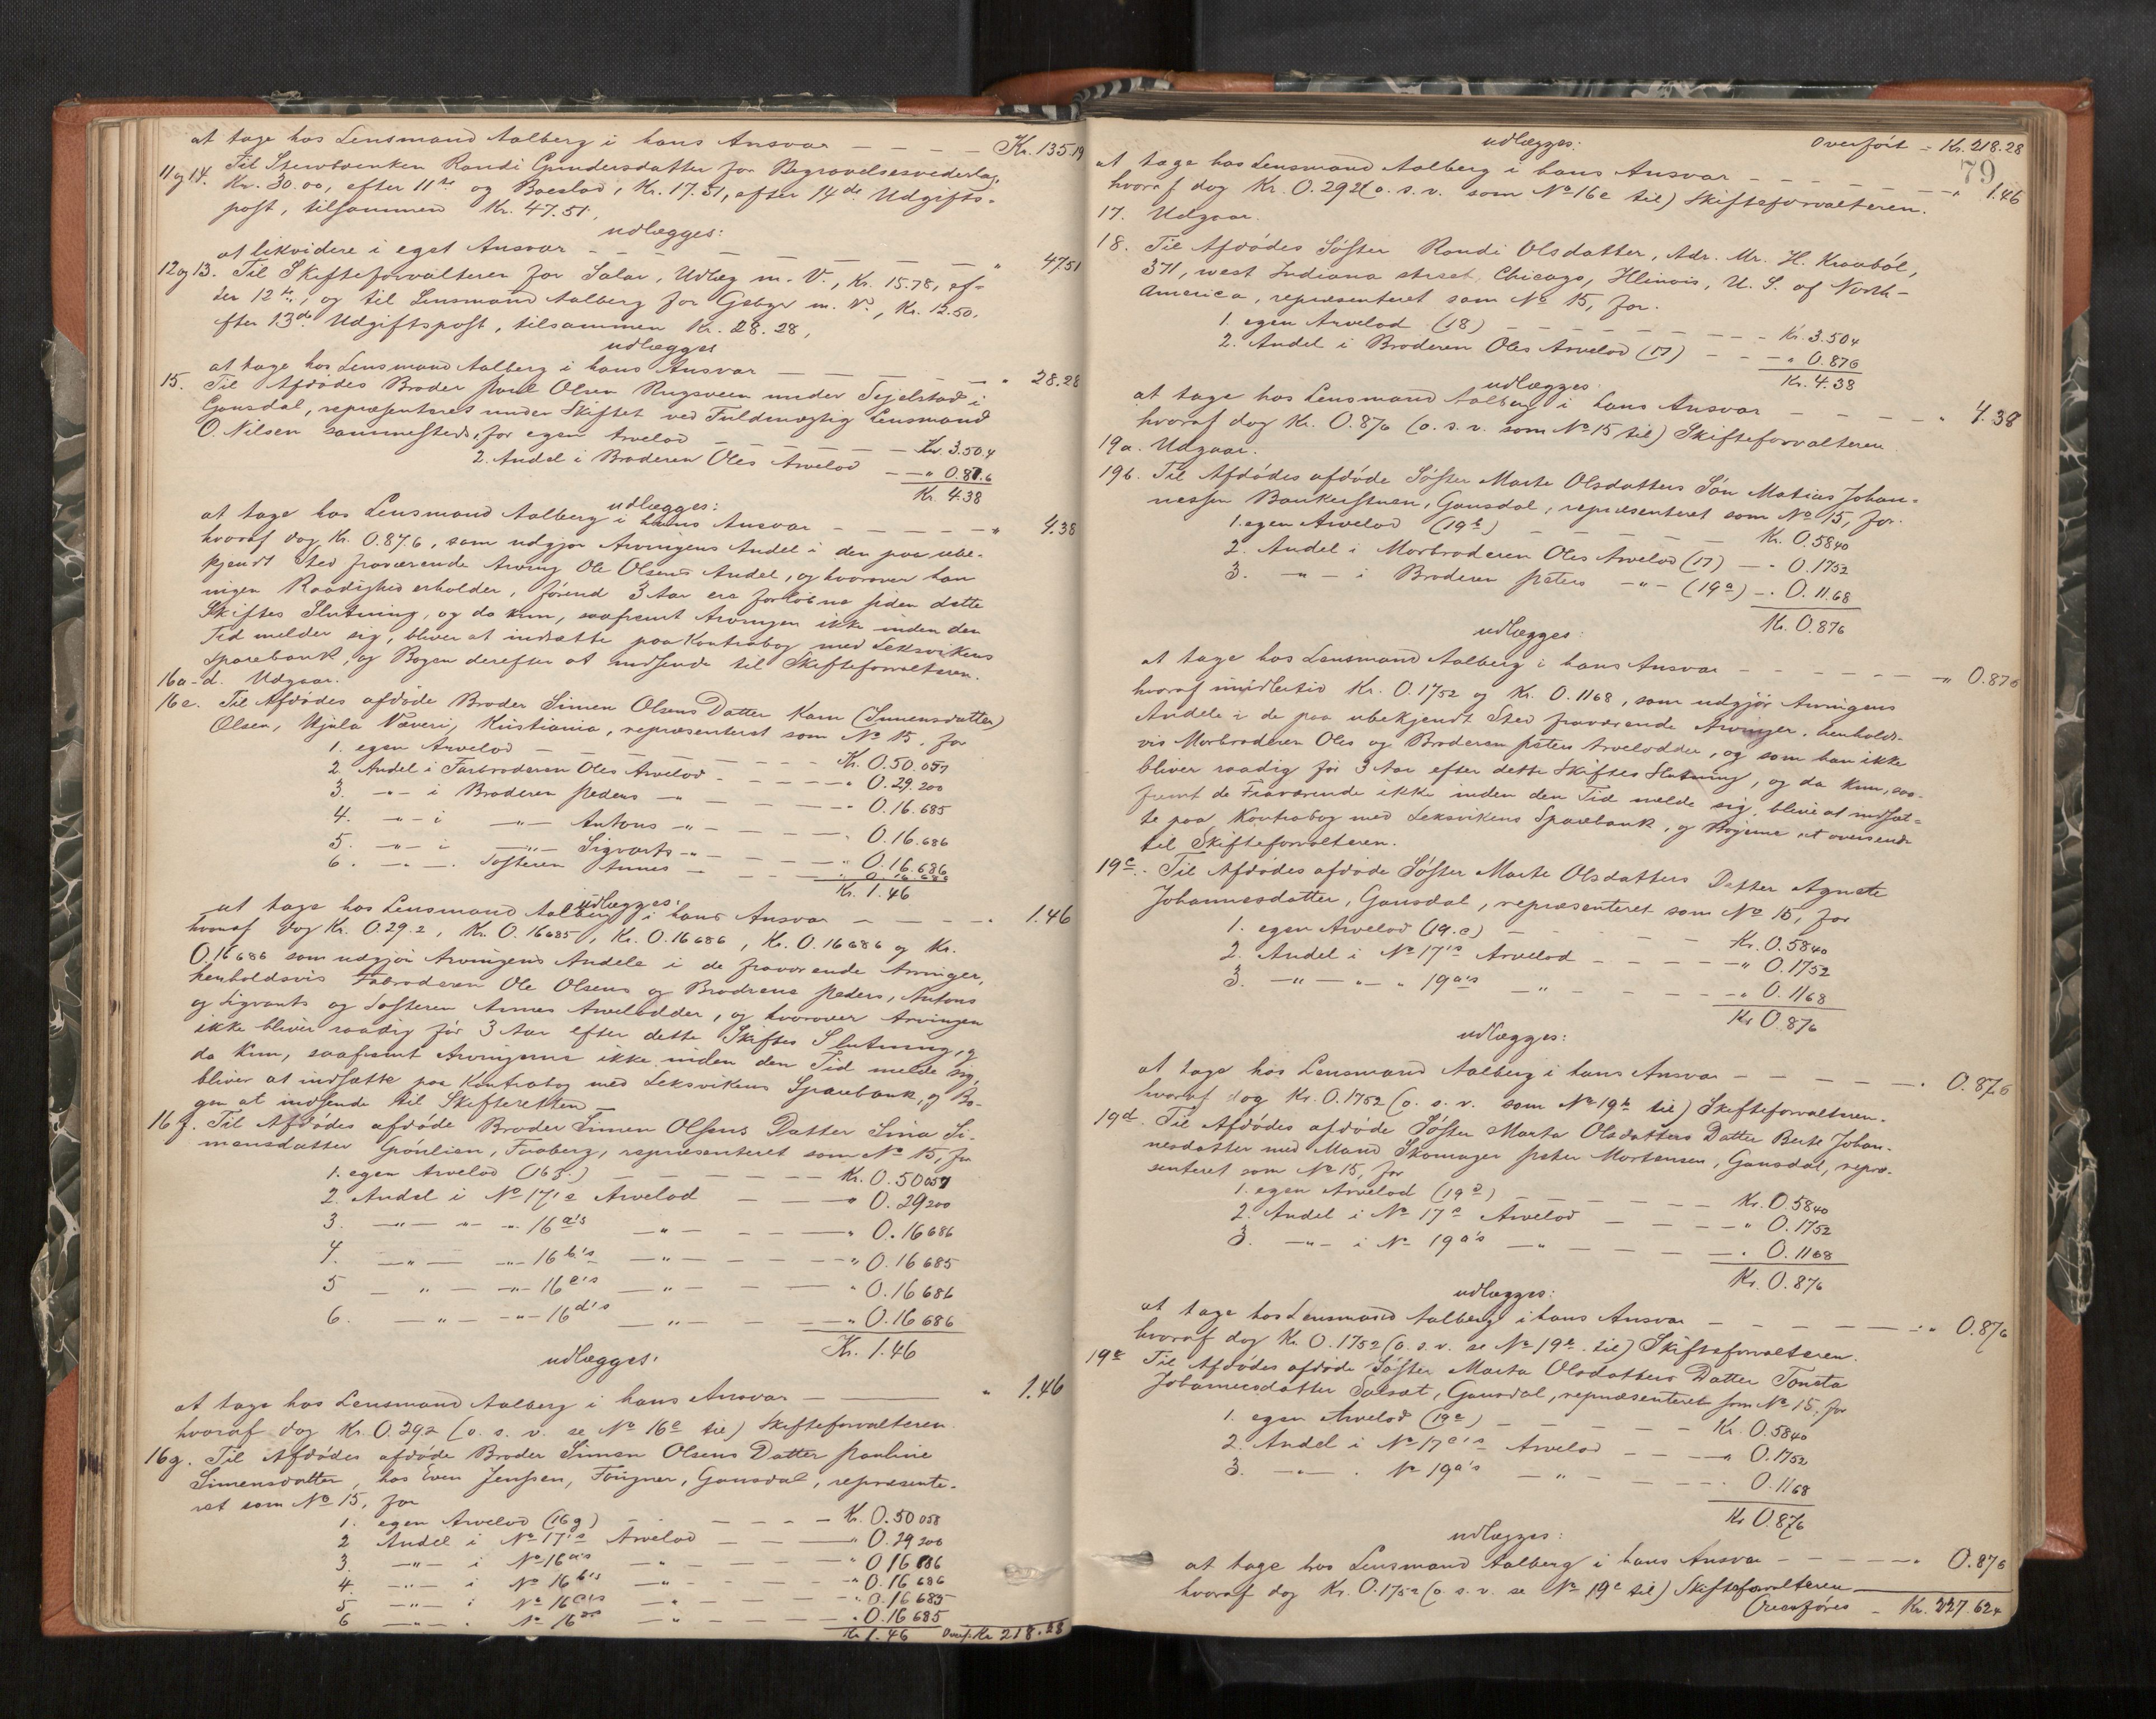 at tage hos Lensmand Aalberg i hans Ansvar — — — — Kr. 135.19
11 og 14. Til Stervboenken Randi Gundersdatter for Begravelsesvederlag,
Kr. 30.00, efter 11te og Boeslod, Kr. 17.51, efter 14de Udgifts-
post, tilsammen Kr. 47.51,
udlægges:
at likvidere i eget Ansvar — — — — — — " 47.51
12 og 13. Til Skifteforvalteren for Salær, Udlæg m. V., Kr. 15.78, ef-
ter 12te, og til Lensmand Aalberg for Gebyr m. V., Kr. 12.50,
efter 13de Udgiftspost, tilsammen Kr. 28.28,
udlægges
at tage hos Lensmand Aalberg i hans Ansvar — — — — " 28.28
15. Til Afdødes Broder Poul Olsen Rugsveen under Sejelstad i
Gausdal, repræsenteret under Skiftet ved Fuldmægtig Lensmand
O. Nilsen sammesteds, for egen Arvelod — — — — Kr. 3.504
2. Andel i Broderen Oles Arvelod — — " 0.87.6
Kr. 4.38
udlægges:
at tage hos Lensmand Aalberg i hans Ansvar — — — — " 4.38
hvoraf dog Kr. 0.87.6, som udgjør Arvingens Andel i den paa ube-
kjendt Sted fraværende Arving Ole Olsens Andel, og hvorover han
ingen Raadighed erholder, førend 3 Aar ere forløbne siden dette
Skiftes Slutning, og da kun, saafremt Arvingen ikke inden den
Tid melder sig, bliver at indsætte paa Kontrabog med Leksvikens
Sparebank, og Bogen derefter at indsende til Skifteforvalteren.
16a-d. Udgaar.
16e. Til Afdødes afdøde Broder Simen Olsens Datter Karn (Simensdatter)
Olsen, Hjula Væveri, Kristiania, repræsenteret som No 15, for
1. egen Arvelod — — — — Kr. 0.50.057
2. Andel i Farbroderen Oles Arvelod — — — " 0.29.200
3. —"— i Broderen Peders —"— — — " 0.16.685
4. —"— i —"— Antons —"— — — " 0.16.686
5. —"— i —"— Sigvarts —"— — — " 0.16.686
6. —"— Søsteren Annes — — — " 0.16.686
Kr. 1.46
udlægges:
at tage hos Lensmand Aalberg i hans Ansvar — — — — " 1.46
hvoraf dog Kr. 0.29.2, Kr. 0.16685, Kr. 0.16686, Kr. 0.16686 og Kr.
0.16686 som udgjør Arvingens Andele i de fraværende Arvinger,
henholdsvis Fabroderen Ole Olsens og Brødrene Peders, Antons
og Sigvarts og Søsteren Annes Arvelodder, og hvorover Arvingen
ikke bliver raadig før 3 Aar efter dette Skiftes Slutning, og
da kun, saafremt Arvingerne ikke inden den Tid melde sig,
bliver at indsætte paa Kontrabog med Leksvikens Sparebank, og Bo-
gen at indsende til Skifteretten —
16f. Til Afdødes afdøde Broder Simen Olsens Datter Sina Si-
mensdatter Grønlien, Faaberg, repræsenteret som No 15, for
1. egen Arvelod (16f.) — — — Kr. 0.50057
2. Andel i No 17's Arvelod — — " 0.29200
3. —"— "— "— 16a's —"— — — " 0.16686
4. —"— —"— 16b's —"— — — " 0.16685
5 —"— —"— 16c's —"— — — " 0.16686
6. —"— —"— 16d's —"— — — " 0.16686
Kr. 1.46
udlægges:
at tage hos Lensmand Aalberg i hans Ansvar — — " 1.46
hvoraf dog Kr. 0.292 (o. s. v. se No 16e til) Skifteforvalteren.
16g. Til Afdødes afdøde Broder Simen Olsens Datter Pauline
Simensdatter, hos Even Jenssen, Fougner, Gausdal, repræsente-
ret som No 15, for
1. egen Arvelod (16g) — — — — Kr. 0.50058
2 Andel i No 17's Arvelod — — " 0.29200
3. —"— i No 16a's —"— — — " 0.16686
4. —"— i No 16b's —"— — — " 0.16686
5 —"— i No 16c's —"— — — " 0.16685
6 —"— . No 16d's " — — " 0.16685
Kr. 1.46 Overf. Kr. 218.28
79
udlægges: Overført — Kr. 218.28
at tage hos Lensmand Aalberg i hans Ansvar — — — — " 1.46
hvoraf dog Kr. 0.292 (o. s. v. som No 16e til) Skifteforvalteren.
17. Udgaar.
18. Til Afdødes Søster Randi Olsdatter, Adr. Mr. H. Kraabøl,
371, west Indiana street, Chicago, Illinois, U. S. of North-
America, repræsenteret som No 15, for.
1. egen Arvelod (18) — — — — Kr. 3.504
2. Andel i Broderen Oles Arvelod (17) — — " 0.876
Kr. 4.38
udlægges:
at tage hos Lensmand Aalberg i hans Ansvar — — — — " 4.38
hvoraf dog Kr. 0.876 (o. s. v. som No 15 til) Skifteforvalteren.
19a. Udgaar.
19b. Til Afdødes afdøde Søster Marte Olsdatters Søn Matias Johan-
nessen Bankerstuen, Gausdal, repræsenteret som No 15, for.
1. egen Arvelod (19b) — — — — Kr. 0.5840
2. Andel i Morbroderen Oles Arvelod (17) — " 0.1752
3. —"— i Broderen Peters —"— (19a) — " 0.1168
Kr. 0.876
udlægges:
at tage hos Lensmand Aalberg i hans Ansvar — — — — " 0.876
hvoraf imidlertid Kr. 0.1752 og Kr. 0.1168, som udgjør Arvingens
Andele i de paa ubekjendt Sted fraværende Arvinger, henholds-
vis Morbroderen Oles og Broderen Peters Arvelodder, og som han ikke
bliver raadig før 3 Aar efter dette Skiftes Slutning, og da kun, saa-
fremt de Fraværende ikke inden den Tid melde sig, blive at indsæt-
te paa Kontrabog med Leksvikens Sparebank, og Bøgerne at oversende
til Skifteforvalteren.
19c. Til Afdødes afdøde Søster Marte Olsdatters Datter Agnete
Johannesdatter, Gausdal, repræsenteret som No 15, for
1. egen Arvelod (19.c) — — — Kr. 0.5840
2. Andel i No 17's Arvelod — — — " 0.1752
3. —"— "— " 19a's —"— — — " 0.1168
Kr 0.876
udlægges:
at tage hos Lensmand Aalberg i hans Ansvar — — — — " 0.876
hvoraf dog Kr. 0.1752 (o. s. v. som No 19b til) Skifteforvalteren.
19d. Til Afdødes afdøde Søster Marta Olsdatters Datter Berte Johan-
nesdatter med Mand Skomager Peter Mortensen, Gausdal, repræ-
senteret som No 15, for
1. egen Arvelod (19d) — — — Kr. 0.5840
2. Andel i No 17's Arvelod — — — " 0.1752
3. —"— i No 19a's —"— — — " 0.1168
Kr. 0.876
udlægges:
at tage hos Lensmand Aalberg i hans Ansvar — — — — " 0.876
hvoraf dog Kr. 0.1752 (o. s. v. se No 19b. til) Skifteforvalteren.
19e Til Afdødes afdøde Søster Marta Olsdatters Datter Toneta
Johannesdatter Sulsæt, Gausdal, repræsenteret som No 15, for
1. egen Arvelod (19e) — — — Kr. 0.5840
2. Andel i No 17's Arvelod — — " 0.1752
3. —"— . No 19a's —"— — — 0.1168
Kr 0.876
udlægges:
at tage hos Lensmand Aalberg i hans Ansva — — — — " 0.876
hvoraf dog Kr. 0.1752 (o. s. v. se No 19c til) Skifteforvalteren
Overføres — Kr. 227.624